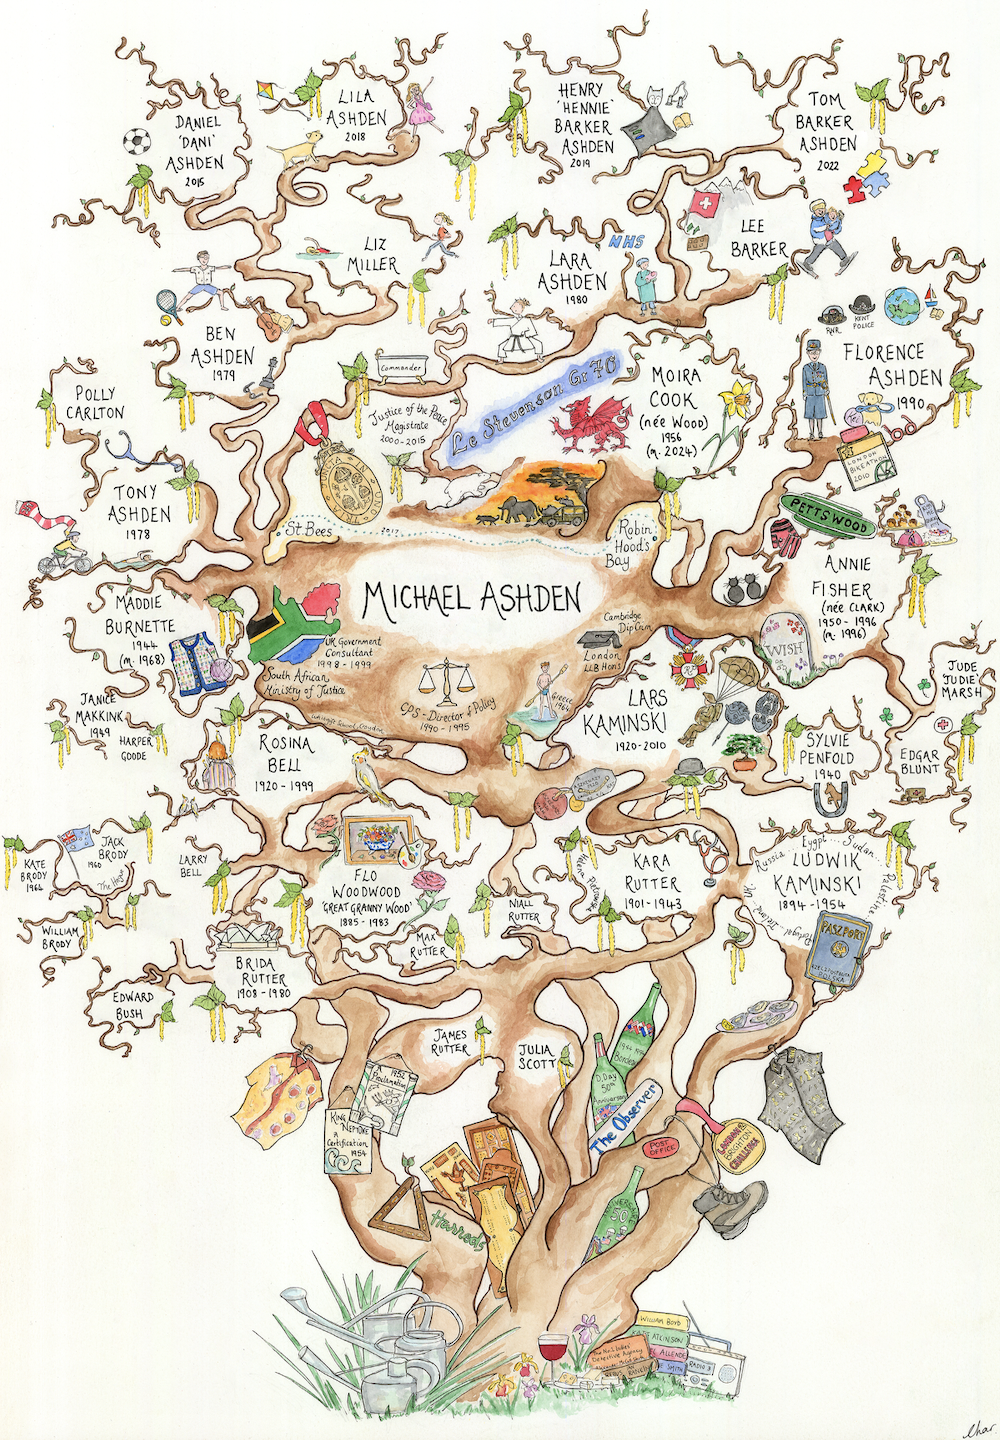 DANIEL
'DANI'
ASHDEN
2015
LILA
ASHDEN
2018
HENRY
'HENNIE'
BARKER
ASHDEN
2019
TOM
BARKER
ASHDEN
2022
LIZ
MILLER
NHS
LARA
ASHDEN
1980
LEE
BARKER
BEN
ASHDEN
1979
RNR
KENT
POLICE
FLORENCE
ASHDEN
1990
POLLY
CARLTON
Commander
Justice of the Peace
Magistrate
2000-2015
Le Stevenson Gr 70
MOIRA
COOK
(née WOOD)
1956
(m. 2024)
LONDON
BIKEATHON
2010
TONY
ASHDEN
1978
St. Bees
2017
Robin
Hood's
Bay
PETTSWOOD
MICHAEL ASHDEN
ANNIE
FISHER
(née CLARK)
1950 - 1996
(m. 1996)
WISH
MADDIE
BURNETTE
1944
(m. 1968)
UK Government
Consultant
1998 - 1999
South African
Ministry of Justice
CPS - Director of Policy
1990 - 1995
Cambridge
Dip Crim
London
LLB Hons
Greece
LARS
KAMINSKI
1920-2010
JUDE
'JUDIE'
MARSH
JANICE
MAKKINK
1949
HARPER
GOODE
ROSINA
BELL
1920 - 1999
SYLVIE
PENFOLD
1940
EDGAR
BLUNT
KATE
BRODY
1962
JACK
BRODY
1960
The Hague
LARRY
BELL
FLO
WOODWOOD
'GREAT GRANNY WOOD'
1885 - 1983
NIALL
RUTTER
KARA
RUTTER
1901-1943
Russia ... Egypt ... Sudan ...
Palestine
LUDWIK
KAMINSKI
1894 - 1954
Portugal
PASZPORT
POLSKA
WILLIAM
BRODY
MAX
RUTTER
BRIDA
RUTTER
1908 - 1980
EDWARD
BUSH
JAMES
RUTTER
JULIA
SCOTT
D.Day
50th
Anniversary
The Observer
1952
A
Proclamation
KING
NEPTUNE
A
Certification
1954
POST
OFFICE
LONDON
BRIGHTON
CHALLENGE
Harrods
ANNIVERSARY
50
WILLIAM BOYD
KATE ATKINSON
The No.1 Ladies
Detective Agency
EL ALLENDE
IE SMITH
RADIO 3
Char